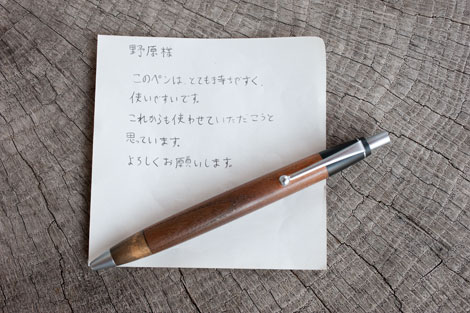 野原様
このペンは、とても持ちやすく、
使いやすいです。
これからも使わせていただこうと
思っています。
よろしくお願いします。